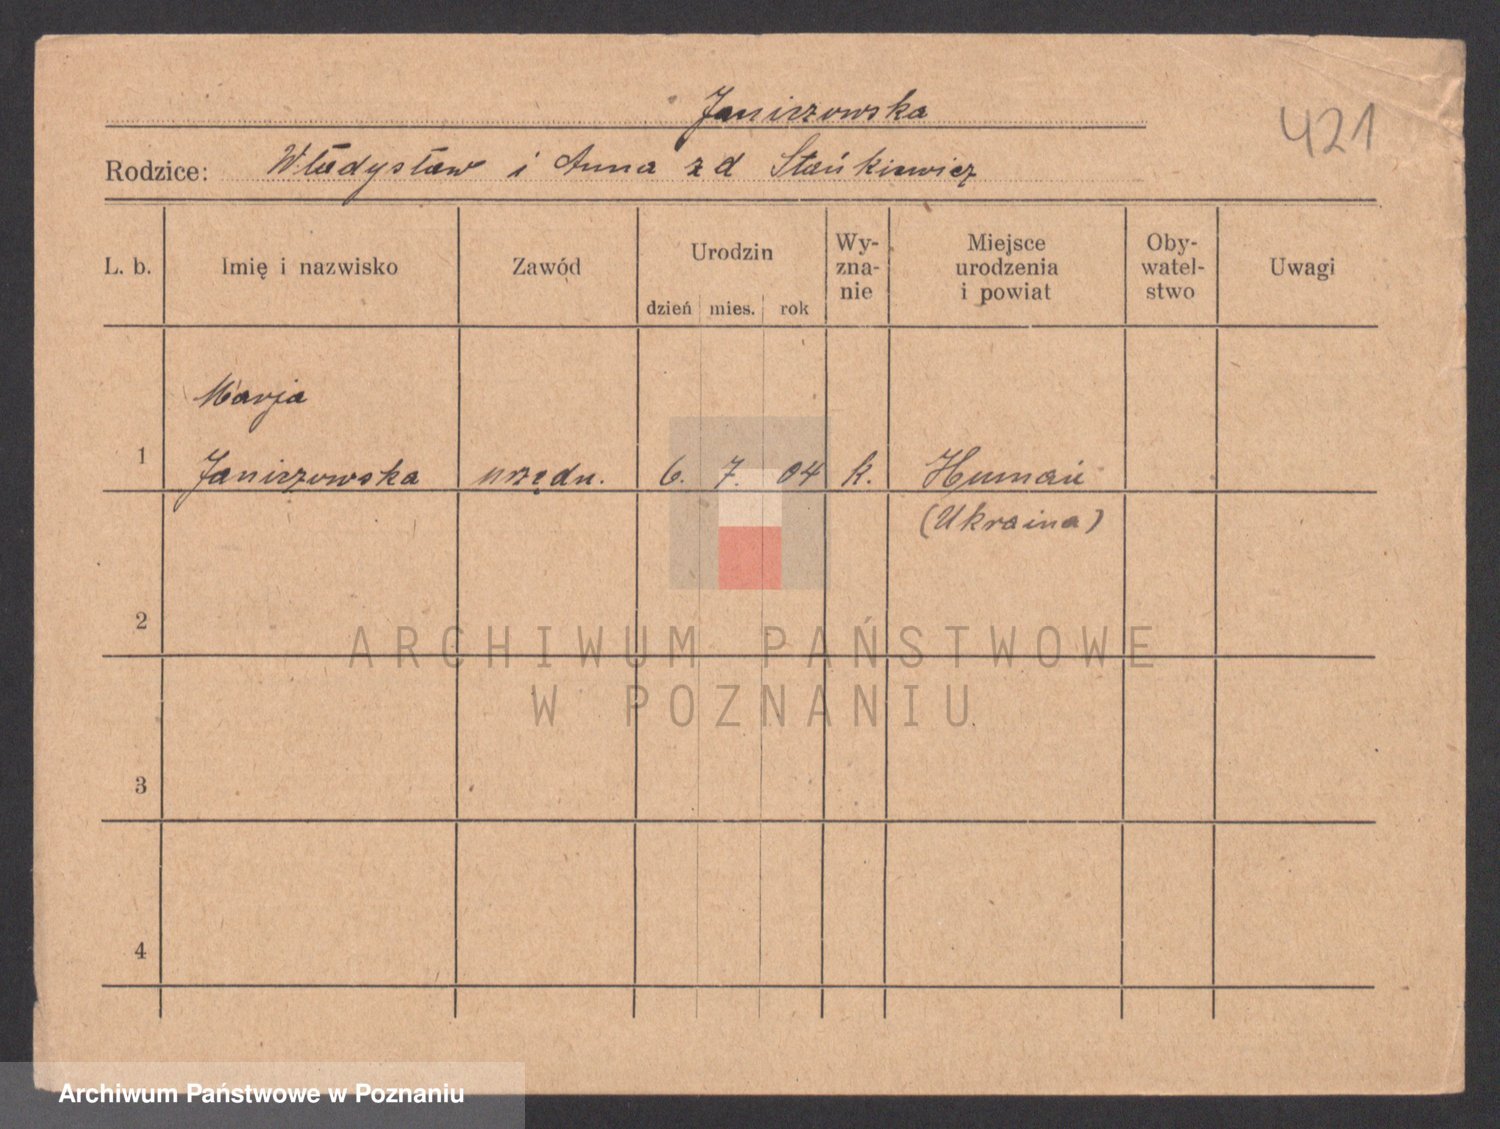 Janiszowska
421
Rodzice: Władysław i Anna z d Stańkiewicz
L. b. Imię i nazwisko Zawód Urodzin dzień mies. rok Wy-zna-nie Miejsce urodzenia i powiat Oby-watel-stwo Uwagi
Marja
1 Janiszowska urzędn. 6. 7. 04 k. Humań
(Ukraina)
2
ARCHIWUM PAŃSTWOWE
W POZNANIU
3
4
Archiwum Państwowe w Poznaniu